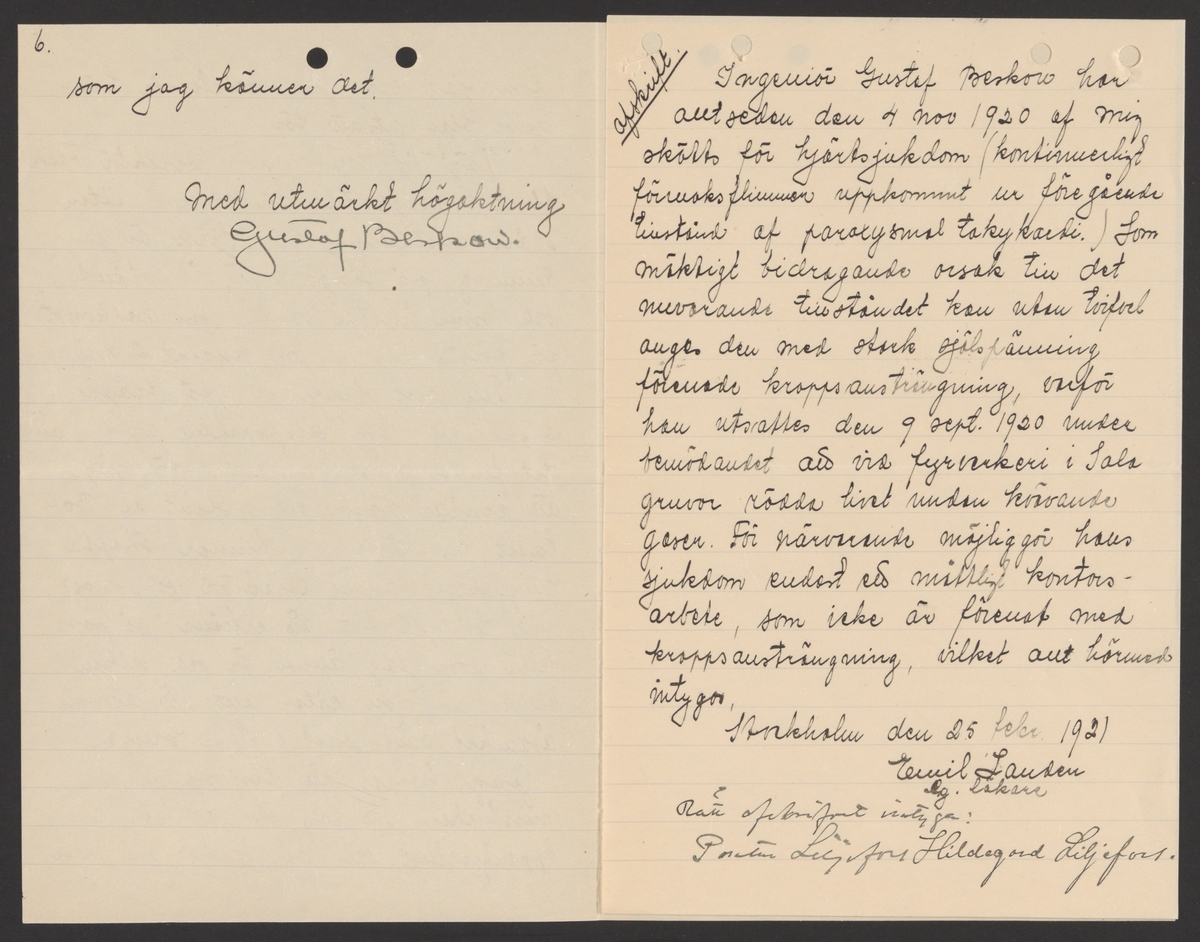 6.
som jag känner det.
Med utmärkt högaktning
Gustaf Beskow.
afskrift.
Ingeniör Gustaf Beskow har
allt sedan den 4 nov 1920 af mig
skötts för hjärtsjukdom (kontinuerligt
förmaksflimmer uppkommit ur föregående
tillstånd af paroxysmal takykardi.) Som
mäktigt bidragande orsak till det
nuvarande tillståndet kan utan tvifvel
anges den med stark själspänning
förenade kroppsansträngning, varför
han utsattes den 9 sept. 1920 under
bemödandet att vid fyrverkeri i Sala
gruvor rädda livet undan kvävande
gaser. För närvarande möjliggör hans
sjukdom endast ett måttligt kontors-
arbete, som icke är förenat med
kroppsansträngning, vilket allt härmed
intygas,
Stockholm den 25 febr. 1921
Emil Landen
Lg. läkare
Rätt afskrifvet intyga:
Liljefors Hildegard Liljefors.